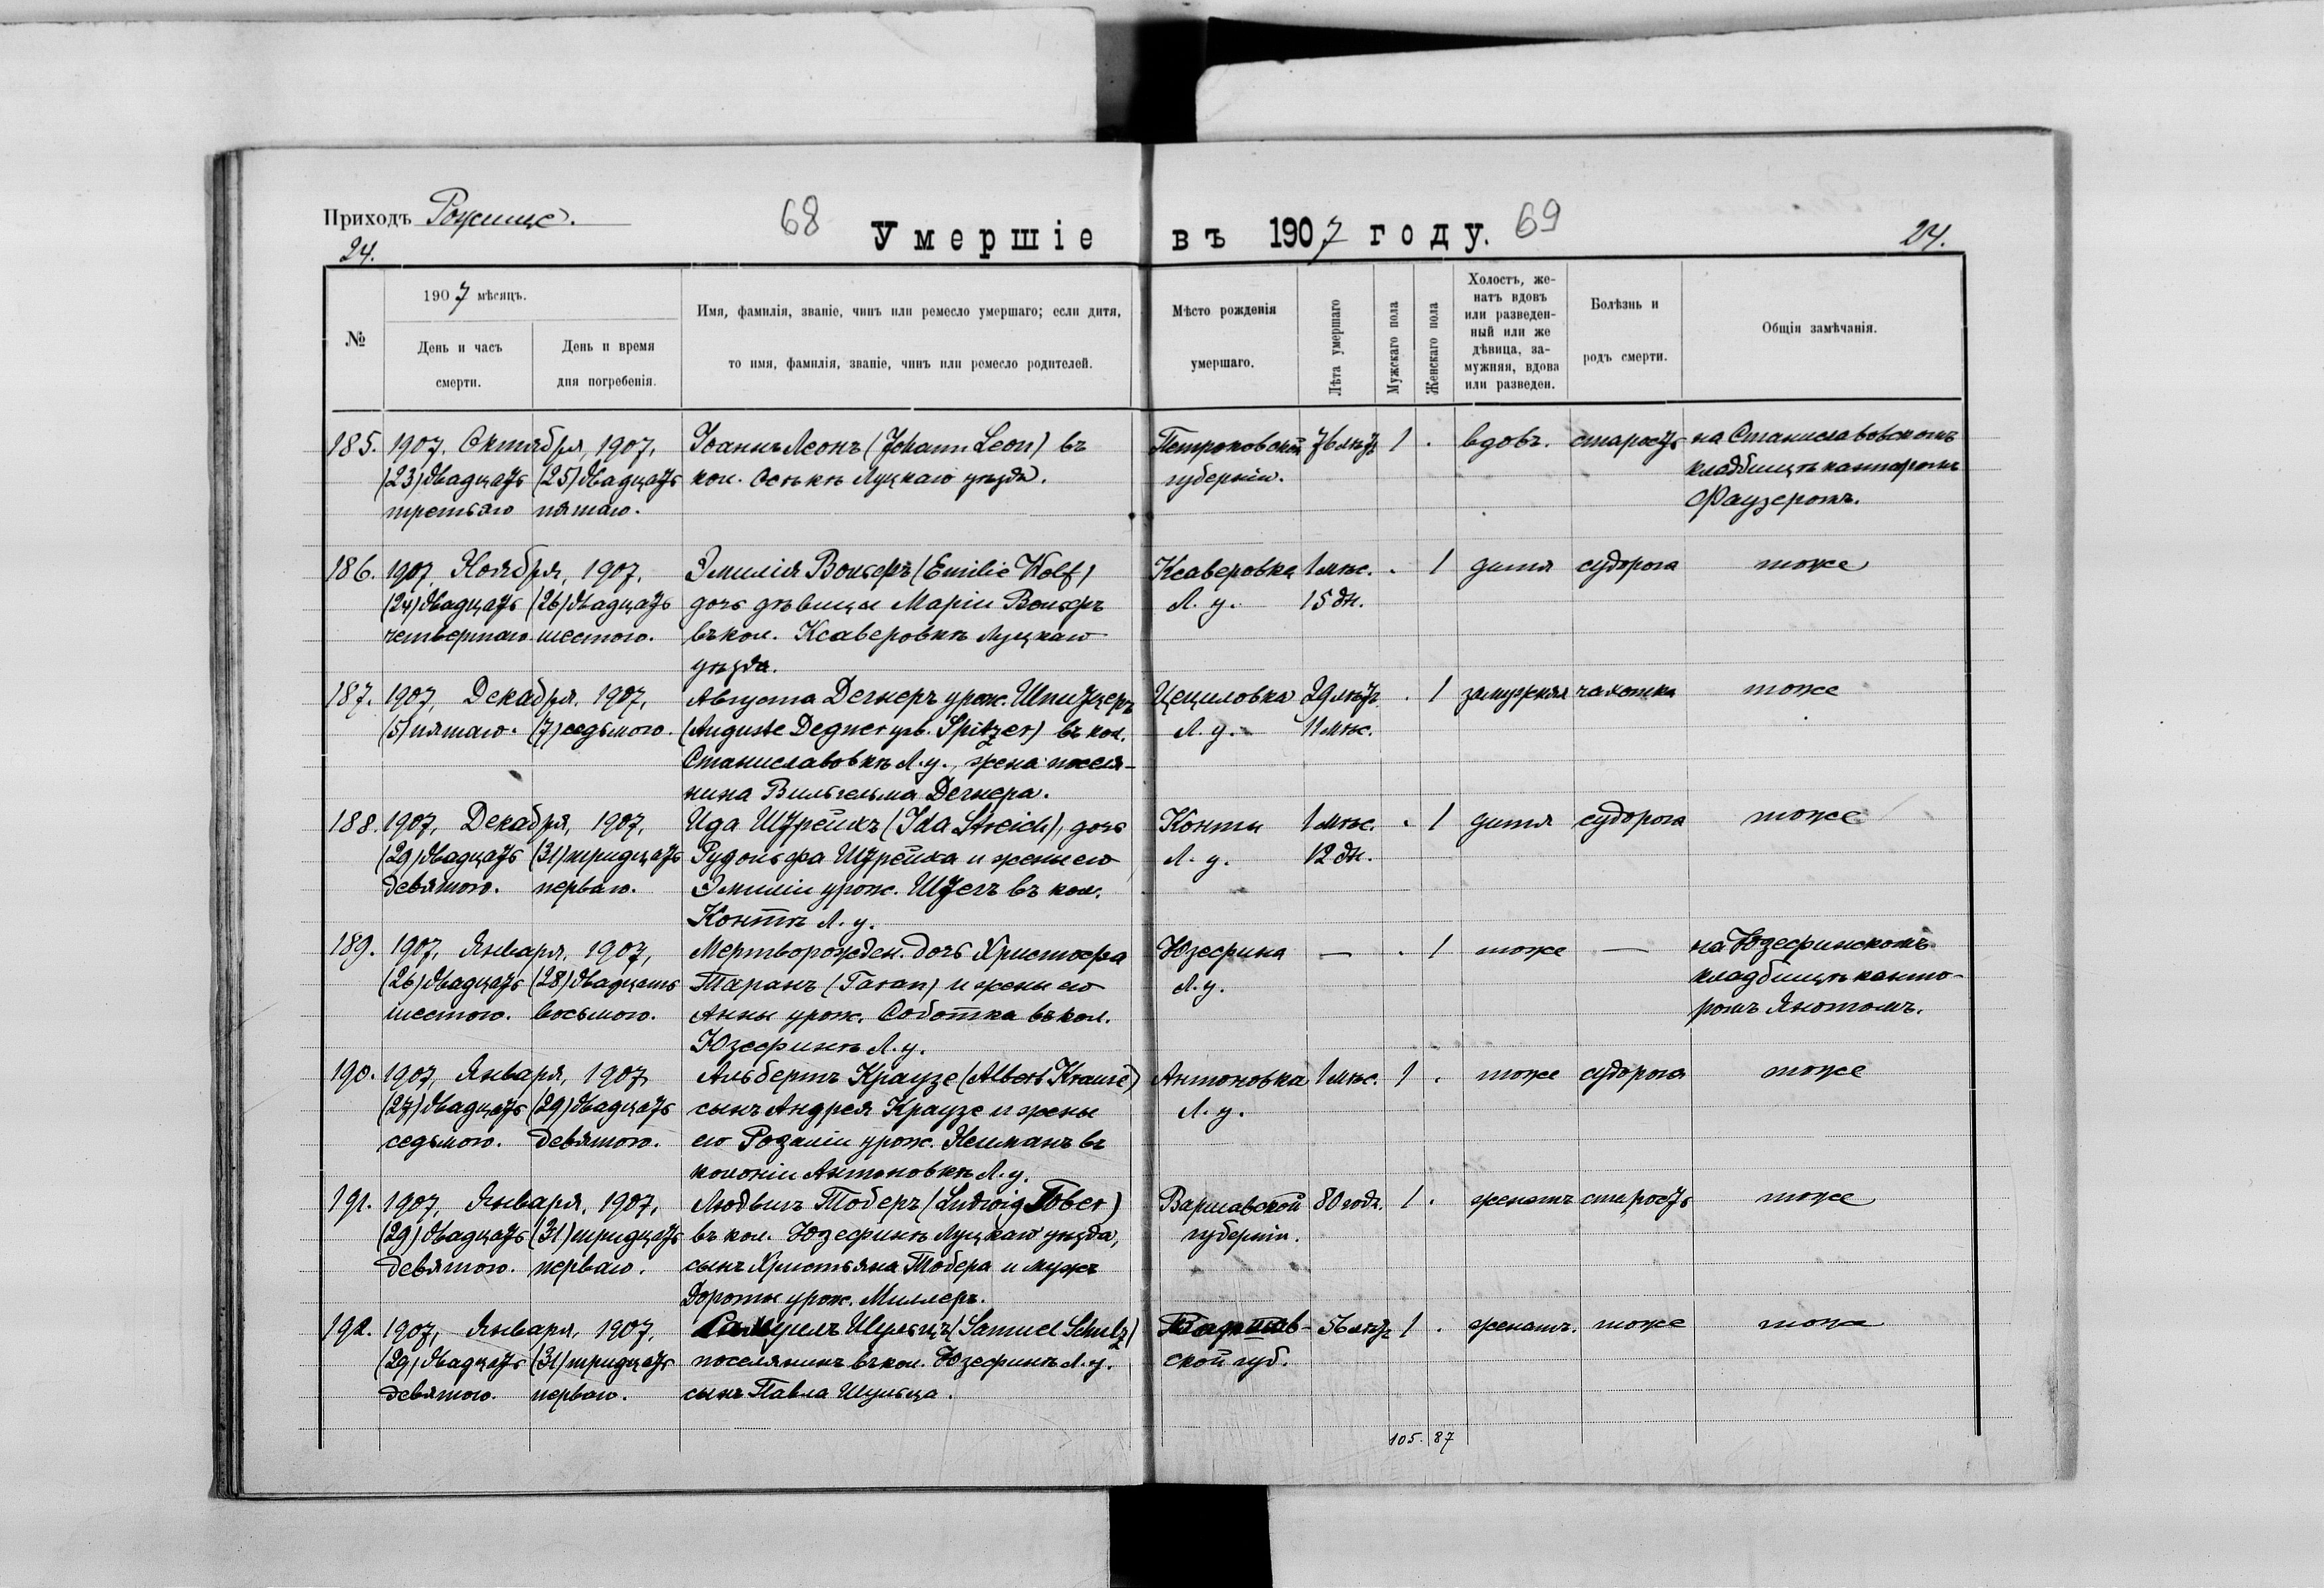 Приходъ Рожище.
68
Умершіе
въ 1907 году.
69
24.
24.
№
1907 мѣсяцъ.
День и часъ смерти.
День и время дня погребенія.
Имя, фамилія, званіе, чинъ или ремесло умершаго; если дитя,
то имя, фамилія, званіе, чинъ или ремесло родителей.
Мѣсто рожденія
умершаго.
Лѣта умершаго
Мужскаго пола
Женскаго пола
Холостъ, же-
натъ вдовъ
или разведен-
ный или же
дѣвица, за-
мужняя, вдова
или разведен.
Болѣзнь и
родъ смерти.
Общія замѣчанія.
185. 1907, Октября, 1907, Іоаннъ Леонъ (Johann Leon) въ Петроковской 76 лѣтъ 1 . вдовъ. старость на Станиславовскомъ
(23) двадцать (25) двадцать кол. Осѣкѣ Луцкаго уѣзда. губерніи. кладбищѣ канторомъ
третьяго пятаго. Фаузеромъ.
186. 1907, Ноября, 1907, Эмилія Вольфъ (Emilie Wolf) Ксаверовка 1 мѣс. . 1 дитя судорога тоже
(24) двадцать (26) двадцать дочь дѣвицы Маріи Вольфъ Л. у. 15 дн.
четвертаго шестого. въ кол. Ксаверовкѣ Луцкаго
уѣзда.
187. 1907, Декабря, 1907, Августа Дегнеръ урож. Шпитцеръ Цециловка 29 лѣтъ . 1 замужняя чахотка тоже
(5) пятаго. (7) седьмого. (Auguste Degner urb. Spitzer) въ кол. Л. у. 11 мѣс.
Станиславовкѣ Л. у., жена поселя-
нина Вильгельма Дегнера.
188. 1907, Декабря, 1907, Ида Штрейхъ (Ida Streich), дочь Конты 1 мѣс. . 1 дитя судорога тоже
(29) двадцать (31) тридцать Рудольфа Штрейха и жены его Л. у. 12 дн.
девятого. перваго. Эмиліи урож. Штегъ въ кол.
Контѣ Л. у.
189. 1907, Января, 1907, Мертворожден. дочь Христофа Юзефина — . 1 тоже — на Юзефинскомъ
(26) двадцать (28) двадцать Таранъ (Taran) и жены его Л. у. кладбищѣ канто-
шестого. восьмого. Анны урож. Соботка въ кол. ромъ Янотомъ.
Юзефинѣ Л. у.
190. 1907, Января, 1907 Альбертъ Краузе (Albert Krause) Антоновка 1 мѣс. 1 . тоже судорога тоже
(27) двадцать (29) двадцать сынъ Андрея Краузе и жены Л. у.
седьмого. девятого. его Розаліи урож. Нейманъ въ
колоніи Антоновкѣ Л. у.
191. 1907, Января, 1907, Людвигъ Тоберъ (Ludwig Tober) Варшавской 80 годъ. 1 . женатъ старость тоже
(29) двадцать (31) тридцать въ кол. Юзефинѣ Луцкаго уѣзда, губерніи.
девятого. перваго. сынъ Христьяна Тобера и мужъ
Дороты урож. Миллеръ.
192. 1907, Января, 1907, Самуилъ Шульцъ (Samuel Schulz) Варшав- 56 лѣтъ 1 . женатъ. тоже тоже
(29) двадцать (31) тридцать поселянинъ въ кол. Юзефинѣ Л. у. ской губ.
девятого. перваго. сынъ Павла Шульца.
105. 87